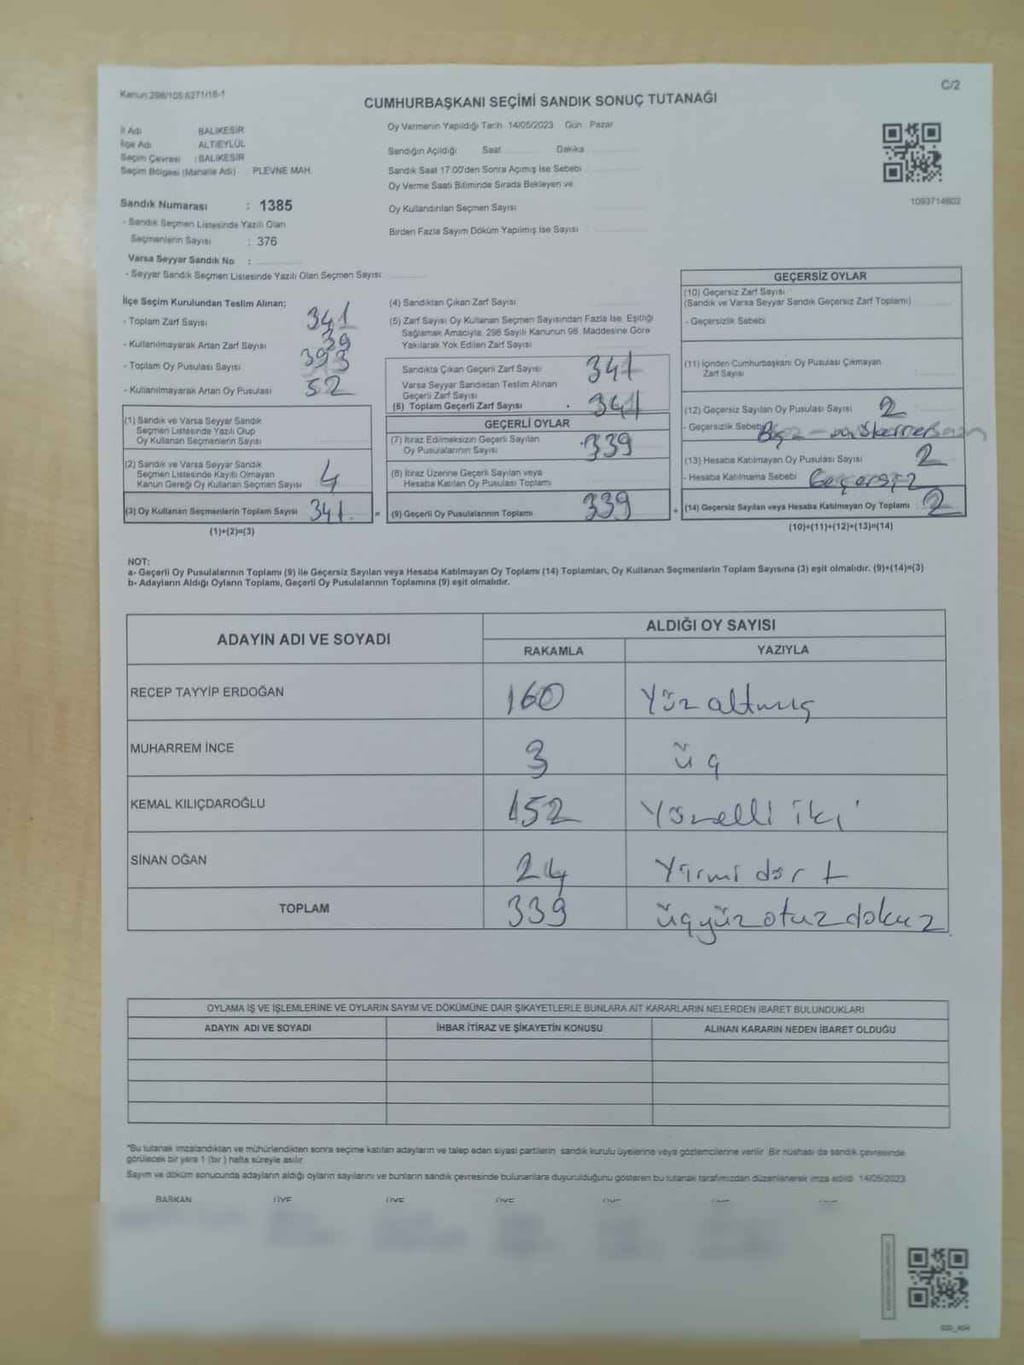 Kanun:298/105 6271/18-1
C/2
CUMHURBAŞKANI SEÇİMİ SANDIK SONUÇ TUTANAĞI
İl Adı BALIKESİR
İlçe Adı ALTIEYLÜL
Seçim Çevresi : BALIKESİR
Seçim Bölgesi (Mahalle Adı) : PLEVNE MAH.
Sandık Numarası : 1385
- Sandık Seçmen Listesinde Yazılı Olan
Seçmenlerin Sayısı : 376
Varsa Seyyar Sandık No :
- Seyyar Sandık Seçmen Listesinde Yazılı Olan Seçmen Sayısı
Oy Vermenin Yapıldığı Tarih 14/05/2023 Gün : Pazar
Sandığın Açıldığı Saat Dakika
Sandık Saat 17:00'den Sonra Açımış İse Sebebi
Oy Verme Saati Bitiminde Sırada Bekleyen ve
Oy Kullandırılan Seçmen Sayısı
Birden Fazla Sayım Döküm Yapılmış İse Sayısı
1093714802
İlçe Seçim Kurulundan Teslim Alınan;
- Toplam Zarf Sayısı 341
- Kullanılmayarak Artan Zarf Sayısı 39
- Toplam Oy Pusulası Sayısı 393
- Kullanılmayarak Artan Oy Pusulası 52
(1) Sandık ve Varsa Seyyar Sandık
Seçmen Listesinde Yazılı Olup
Oy Kullanan Seçmenlerin Sayısı
(2) Sandık ve Varsa Seyyar Sandık
Seçmen Listesinde Kayıtlı Olmayan
Kanun Gereği Oy Kullanan Seçmen Sayısı 4
(3) Oy Kullanan Seçmenlerin Toplam Sayısı 341
(1)+(2)=(3)
(4) Sandıktan Çıkan Zarf Sayısı
(5) Zarf Sayısı Oy Kullanan Seçmen Sayısından Fazla İse, Eşitliği
Sağlamak Amacıyla, 298 Sayılı Kanunun 98. Maddesine Göre
Yakılarak Yok Edilen Zarf Sayısı
Sandıkta Çıkan Geçerli Zarf Sayısı 341
Varsa Seyyar Sandıktan Teslim Alınan
Geçerli Zarf Sayısı
(6) Toplam Geçerli Zarf Sayısı 341
GEÇERLİ OYLAR
(7) İtiraz Edilmeksizin Geçerli Sayılan
Oy Pusulalarının Sayısı 339
(8) İtiraz Üzerine Geçerli Sayılan veya
Hesaba Katılan Oy Pusulası Toplamı
= (9) Geçerli Oy Pusulalarının Toplamı 339
GEÇERSİZ OYLAR
(10) Geçersiz Zarf Sayısı
(Sandık ve Varsa Seyyar Sandık Geçersiz Zarf Toplamı)
- Geçersizlik Sebebi
(11) İçinden Cumhurbaşkanı Oy Pusulası Çıkmayan
Zarf Sayısı
(12) Geçersiz Sayılan Oy Pusulası Sayısı 2
- Geçersizlik Sebebi
(13) Hesaba Katılmayan Oy Pusulası Sayısı 2
- Hesaba Katılmama Sebebi Geçersiz
+ (14) Geçersiz Sayılan veya Hesaba Katılmayan Oy Toplamı 2
(10)+(11)+(12)+(13)=(14)
NOT:
a- Geçerli Oy Pusulalarının Toplamı (9) ile Geçersiz Sayılan veya Hesaba Katılmayan Oy Toplamı (14) Toplamları, Oy Kullanan Seçmenlerin Toplam Sayısına (3) eşit olmalıdır. (9)+(14)=(3)
b- Adayların Aldığı Oyların Toplamı, Geçerli Oy Pusulalarının Toplamına (9) eşit olmalıdır.
ADAYIN ADI VE SOYADI ALDIĞI OY SAYISI
RAKAMLA YAZIYLA
RECEP TAYYİP ERDOĞAN 160 Yüz altmış
MUHARREM İNCE 3 üç
KEMAL KILIÇDAROĞLU 152 Yüzelli iki
SİNAN OĞAN 24 Yirmi dört
TOPLAM 339 üçyüz otuz dokuz
OYLAMA İŞ VE İŞLEMLERİNE VE OYLARIN SAYIM VE DÖKÜMÜNE DAİR ŞİKAYETLERLE BUNLARA AİT KARARLARIN NELERDEN İBARET BULUNDUKLARI
ADAYIN ADI VE SOYADI İHBAR İTİRAZ VE ŞİKAYETİN KONUSU ALINAN KARARIN NEDEN İBARET OLDUĞU
*Bu tutanak imzalandıktan ve mühürlendikten sonra seçime katılan adayların ve talep eden siyasi partilerin sandık kurulu üyelerine veya gözlemcilerine verilir. Bir nüshası da sandık çevresinde
görülecek bir yere 1 (bir) hafta süreyle asılır.
Sayım ve döküm sonucunda adayların aldığı oyların sayılarını ve bunların sandık çevresinde bulunanlara duyurulduğunu gösteren bu tutanak tarafımızdan düzenlenerek imza edildi 14/05/2023
BAŞKAN ÜYE ÜYE ÜYE ÜYE ÜYE